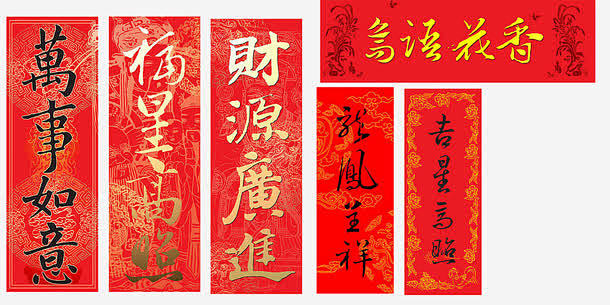 萬事如意
福星高照
財源廣進
鳥语花香
龍鳳呈祥
吉星高照